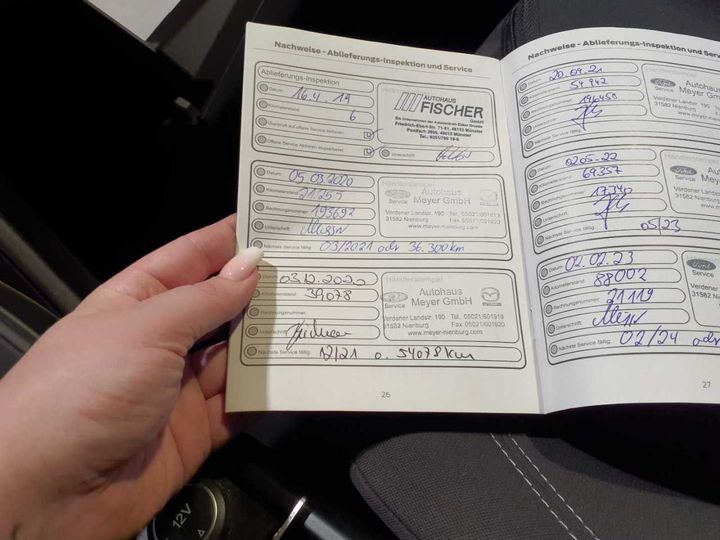 Nachweise - Ablieferungs-Inspektion und Service
Ablieferungs-Inspektion
Datum: 16.4.19
Kilometerstand: 6
Überprüft auf offene Service Aktionen:
Offene Service Aktionen abgearbeitet:
AUTOHAUS
FISCHER
GmbH
Friedrich-Ebert-Str.
48153 Münster
Unterschrift
Datum: 05.03.2020
Kilometerstand: 21255
Rechnungsnummer: 193692
Unterschrift:
Nächste Service fällig: 03/2021 oder 36.300km
Händlerstempel
Ford Service
Autohaus
Meyer GmbH
Verdener Landstr. 190 Tel. 05021/601919
31582 Nienburg Fax 05021/601920
www.meyer-nienburg.com
Datum: 03.12.2020
Kilometerstand: 39078
Rechnungsnummer:
Unterschrift:
Nächste Service fällig: 12/21 o. 54078 km
Händlerstempel
Service
Autohaus
Meyer GmbH
Verdener Landstr. 190 Tel. 05021/601919
31582 Nienburg Fax 05021/601920
www.meyer-nienburg.com
26
Nachweise - Ablieferungs-Inspektion und Serv
Datum: 20.04.21
Kilometerstand: 54.942
Rechnungsnummer: 196450
Unterschrift:
Nächste Service fällig:
Ford Service
Autohaus
Meyer GmbH
Verdener Landstr. 190
31582 Nienburg
Datum: 02.05.22
Kilometerstand: 69.357
Rechnungsnummer: 17340
Unterschrift:
Nächste Service fällig: 05/23
Ford Service
Autohaus
Meyer GmbH
Verdener Landstr.
31582 Nienburg
Datum: 02.02.23
Kilometerstand: 88002
Rechnungsnummer: 21119
Unterschrift:
Nächste Service fällig: 02/24 oder
Ford Service
Verdener
31582 N
27
12V